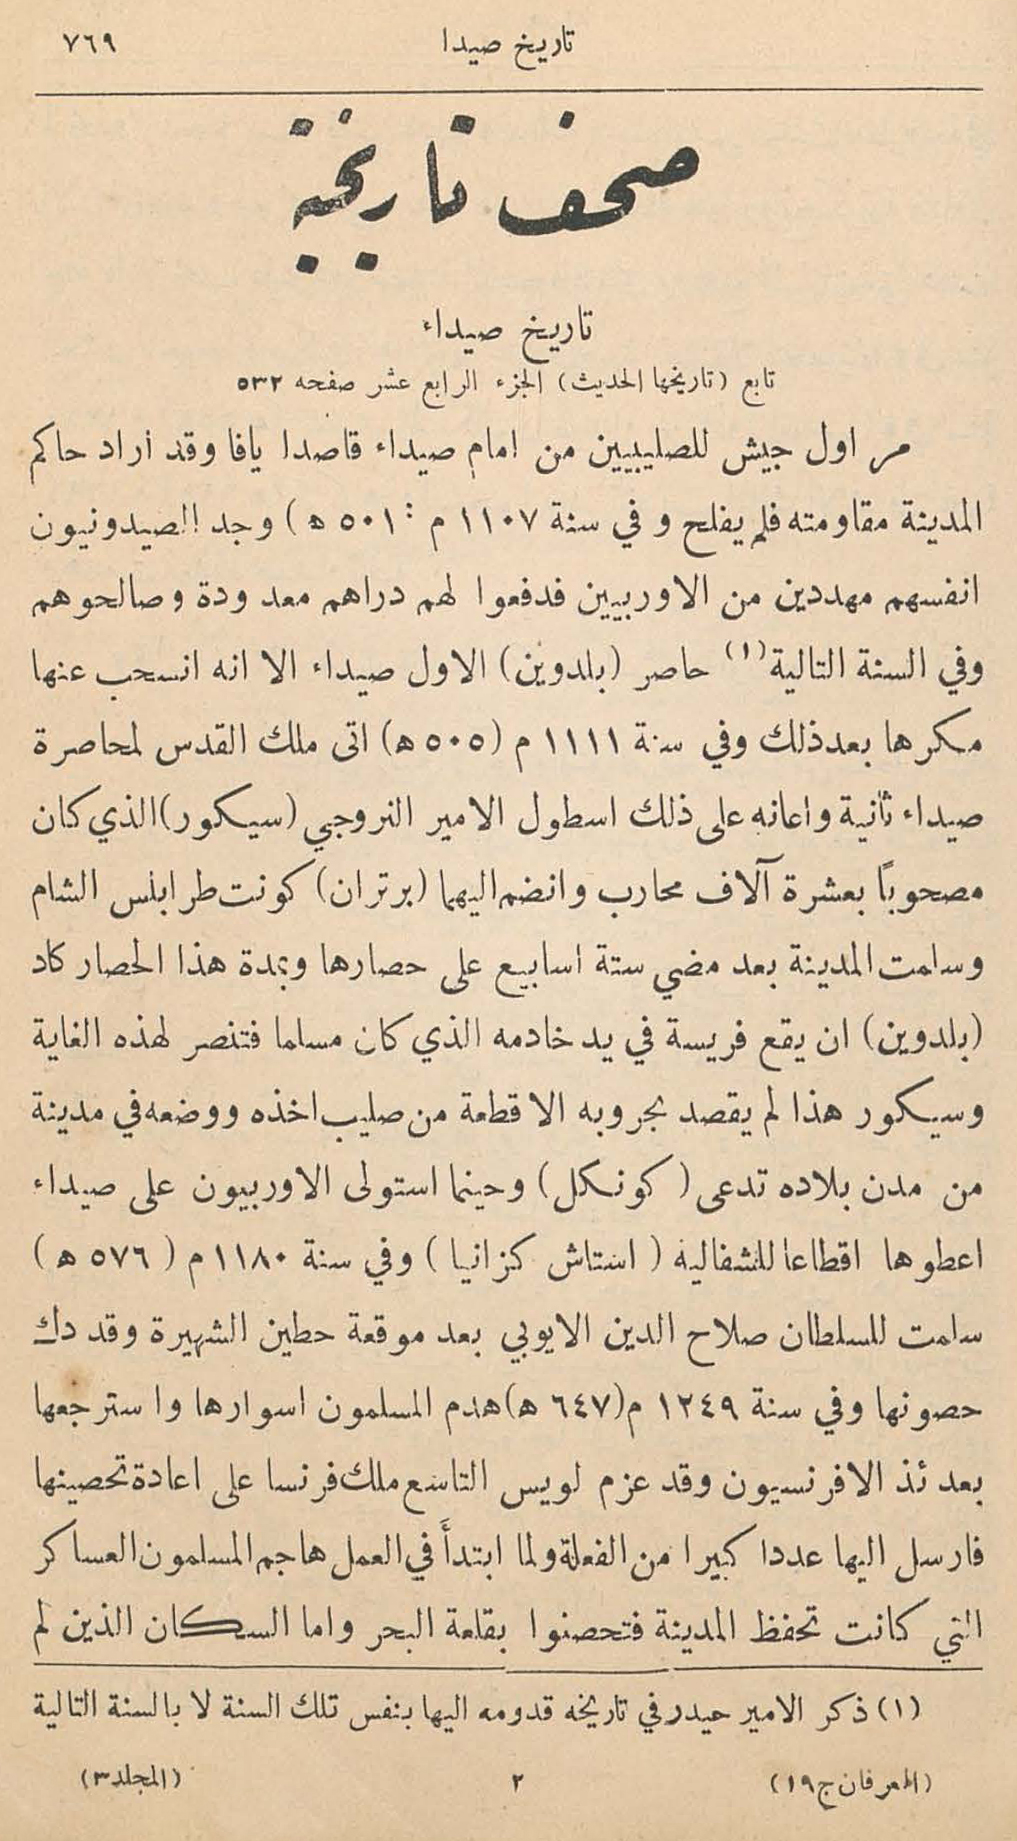 تاريخ صيدا ٧٦٩
صحف تاريخية
تاريخ صيداء
تابع (تاريخها الحديث) الجزء الرابع عشر صفحه ٥٣٢
مر اول جيش للصليبيين من امام صيداء قاصدا يافا وقد أراد حاكم
المدينة مقاومته فلم يفلح وفي سنة ١١٠٧ م : ٥٠١ ه) وجد الصيدونيون
انفسهم مهددين من الاوربيين فدفعوا لهم دراهم معدودة وصالحوهم
وفي السنة التالية (١) حاصر (بلدوين) الاول صيداء الا انه انسحب عنها
مكرها بعد ذلك وفي سنة ١١١١ م (٥٠٥ ه) اتى ملك القدس لمحاصرة
صيداء ثانية واعانه على ذلك اسطول الامير النروجي (سيكور) الذي كان
مصحوبًا بعشرة آلاف محارب وانضم اليهما (برتران) كونت طرابلس الشام
وسلمت المدينة بعد مضي ستة اسابيع على حصارها وبمدة هذا الحصار كاد
(بلدوين) ان يقع فريسة في يد خادمه الذي كان مسلما فتنصر لهذه الغاية
وسيكور هذا لم يقصد بحروبه الا قطعة من صليب اخذه ووضعه في مدينة
من مدن بلاده تدعى (كونكل) وحينما استولى الاوربيون على صيداء
اعطوها اقطاعا للشفاليه (استاش كزانيا) وفي سنة ١١٨٠ م (٥٧٦ ه)
سلمت للسلطان صلاح الدين الايوبي بعد موقعة حطين الشهيرة وقد دك
حصونها وفي سنة ١٢٤٩ م (٦٤٧ ه) هدم المسلمون اسوارها واسترجعها
بعد ئذ الافرنسيون وقد عزم لويس التاسع ملك فرنسا على اعادة تحصينها
فارسل اليها عددا كبيرا من الفعلة ولما ابتدأَ في العمل هاجم المسلمون العساكر
التي كانت تحفظ المدينة فتحصنوا بقلعة البحر واما السكان الذين لم
(١) ذكر الامير حيدر في تاريخه قدومه اليها بنفس تلك السنة لا بالسنة التالية
(العرفان ج ١٩) ٢ (المجلد ٣)